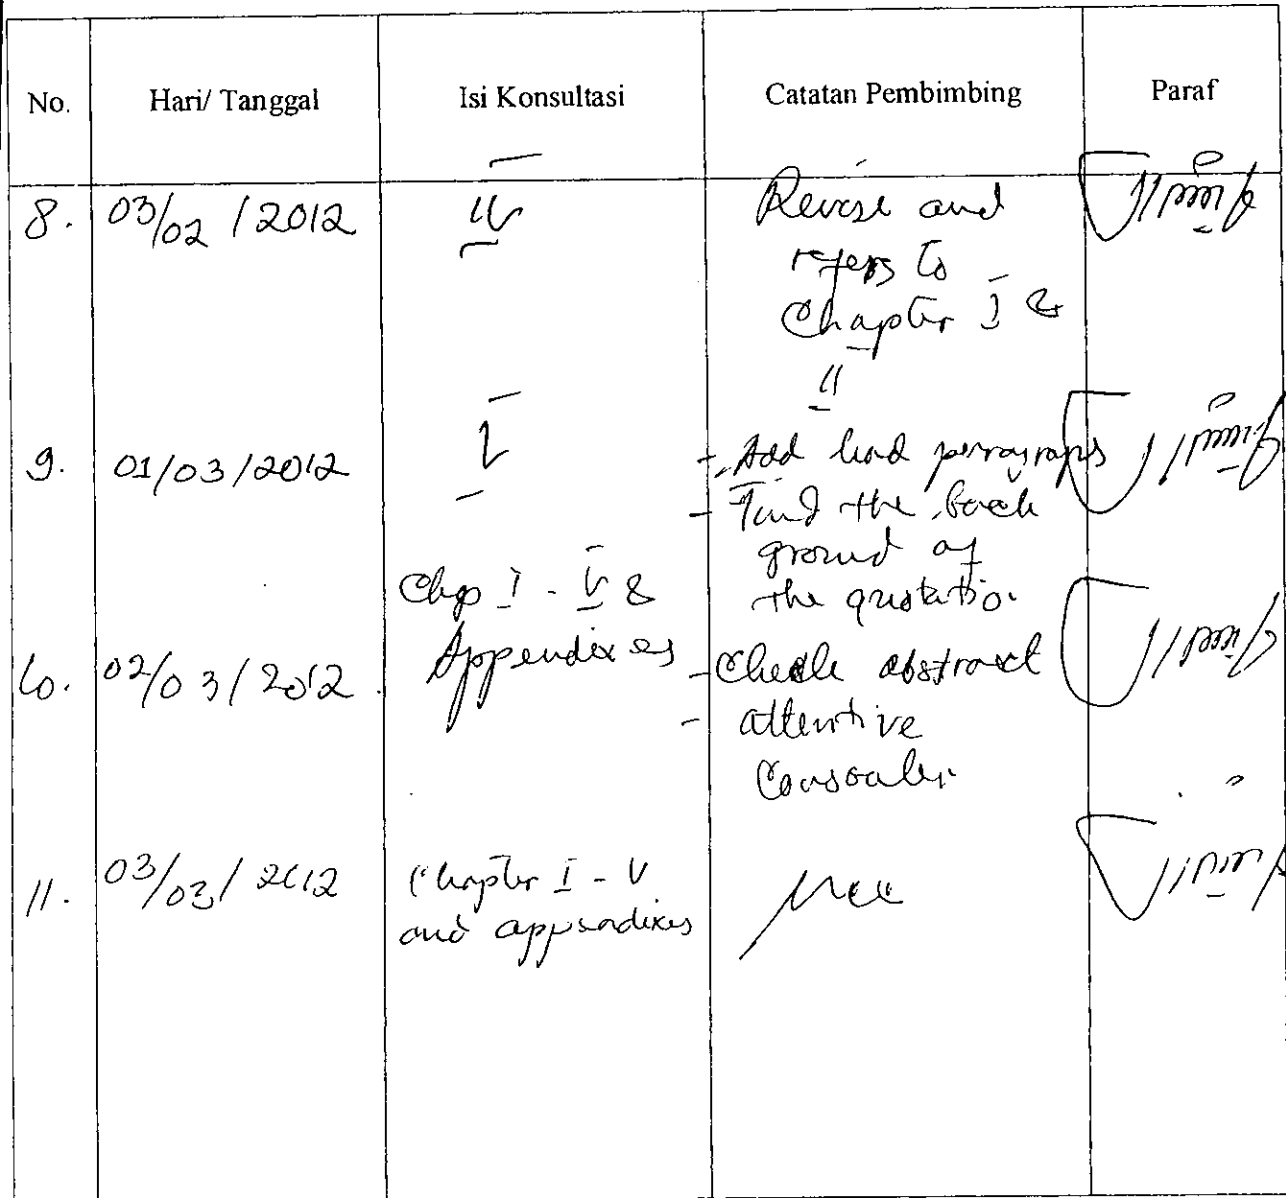 No. Hari/ Tanggal Isi Konsultasi Catatan Pembimbing Paraf
8. 03/02/2012 IV Revise and
refers to
Chapter I &
II
9. 01/03/2012 V - Add lead paragraphs
- Find the back
ground of
the quotation
Chap I - V &
Appendixes
10. 02/03/2012 - Check abstract
- attentive
11. 03/03/2012 Chapter I - V
and appendixes